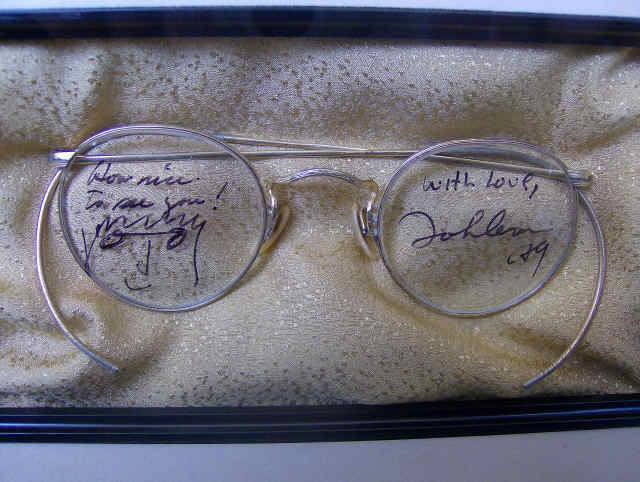 How nice
To see you!
With Love,
John Lennon
'69